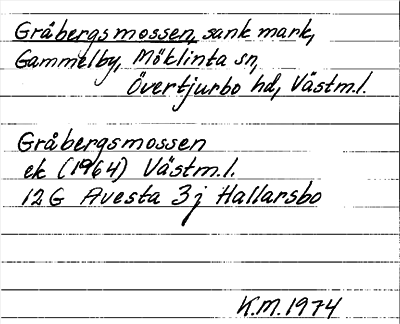 Gråbergsmossen, sank mark,
Gammelby, Möklinta sn,
Övertjurbo hd, Västm.l.
Gråbergsmossen
ek (1964) Västm.l.
12G Avesta 3j Hallarsbo
K.M. 1974